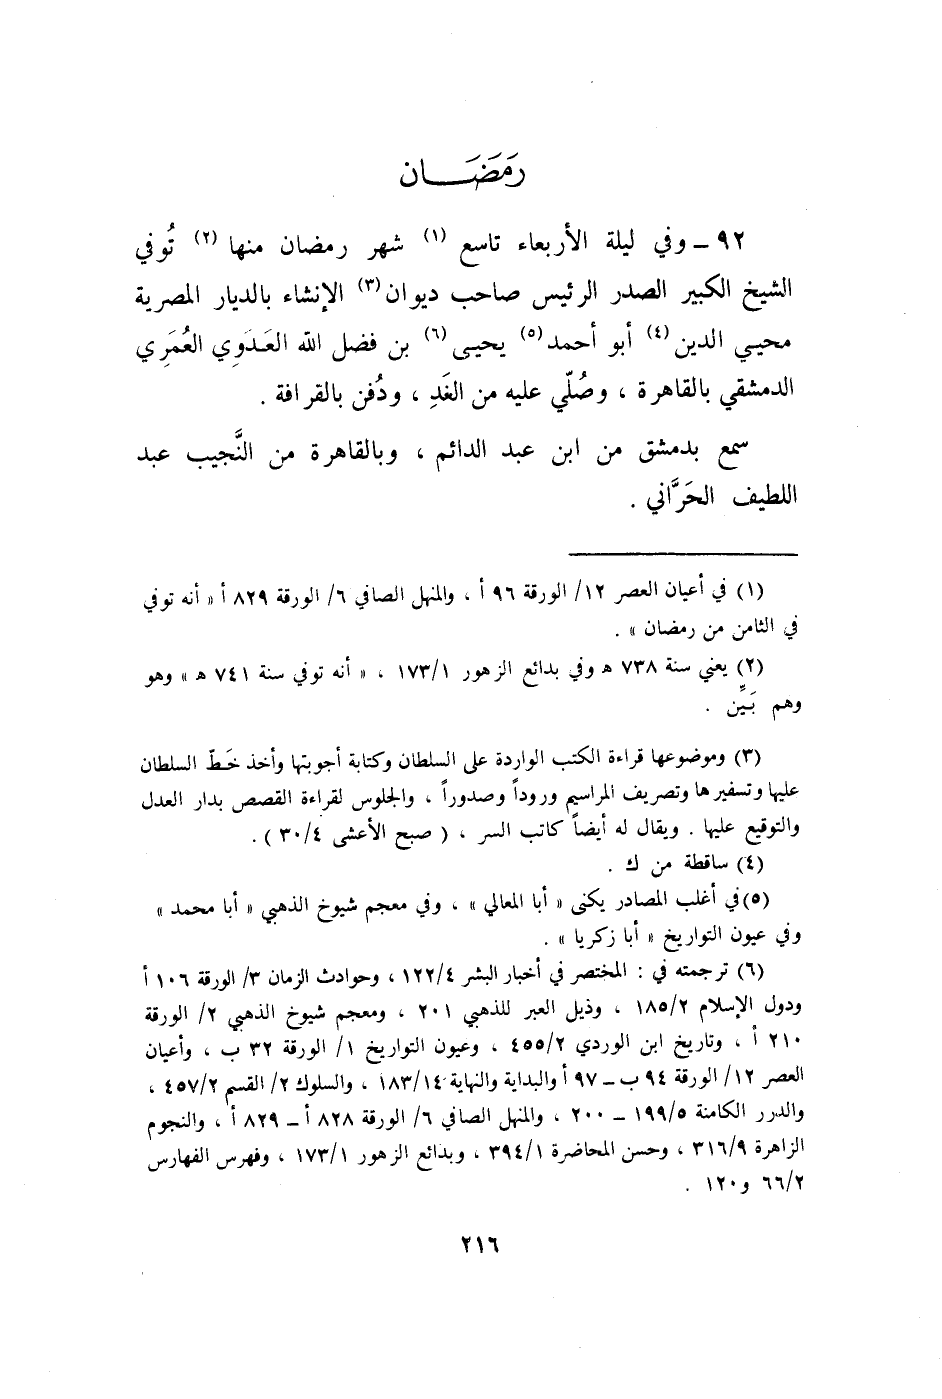 رَمَضَـــان
٩٢ ـ وفي ليلة الأربعاء تاسع (١) شهر رمضان منها (٢) تُوفي
الشيخ الكبير الصدر الرئيس صاحب ديوان(٣) الإنشاء بالديار المصرية
محيـي الدين(٤) أبو أحمد(٥) يحيـى(٦) بن فضل الله العَدَوِي العُمَرِي
الدمشقي بالقاهرة ، وصُلّي عليه من الغَدِ ، ودُفن بالقرافة .
سمع بدمشق من ابن عبد الدائم ، وبالقاهرة من النَّجيب عبد
اللطيف الحَرَّاني .
(١) في أعيان العصر ١٢/ الورقة ٩٦ أ ، والمنهل الصافي ٦/ الورقة ٨٢٩ أ « أنه توفي
في الثامن من رمضان » .
(٢) يعني سنة ٧٣٨ ه وفي بدائع الزهور ١٧٣/١ ، « أنه توفي سنة ٧٤١ ه » وهو
وهم بَيِّن .
(٣) وموضوعها قراءة الكتب الواردة على السلطان وكتابة أجوبتها وأخذ خَطّ السلطان
عليها وتسفيرها وتصريف المراسيم وروداً وصدوراً ، والجلوس لقراءة القصص بدار العدل
والتوقيع عليها . ويقال له أيضاً كاتب السر ، ( صبح الأعشى ٣٠/٤ ) .
(٤) ساقطة من ك .
(٥) في أغلب المصادر يكنى « أبا المعالي » ، وفي معجم شيوخ الذهبي « أبا محمد »
وفي عيون التواريخ « أبا زكريا » .
(٦) ترجمته في : المختصر في أخبار البشر ١٢٢/٤ ، وحوادث الزمان ٣/ الورقة ١٠٦ أ
ودول الإسلام ١٨٥/٢ ، وذيل العبر للذهبي ٢٠١ ، ومعجم شيوخ الذهبي ٢/ الورقة
٢١٠ أ ، وتاريخ ابن الوردي ٤٥٥/٢ ، وعيون التواريخ ١/ الورقة ٣٢ ب ، وأعيان
العصر ١٢/ الورقة ٩٤ ب ـ ٩٧ أ والبداية والنهاية ١٨٣/١٤ ، والسلوك ٢/ القسم ٤٥٧/٢ ،
والدرر الكامنة ١٩٩/٥ ـ ٢٠٠ ، والمنهل الصافي ٦/ الورقة ٨٢٨ أ ـ ٨٢٩ أ ، والنجوم
الزاهرة ٣١٦/٩ ، وحسن المحاضرة ٣٩٤/١ ، وبدائع الزهور ١٧٣/١ ، وفهرس الفهارس
٦٦/٢ و١٢٠ .
٢١٦